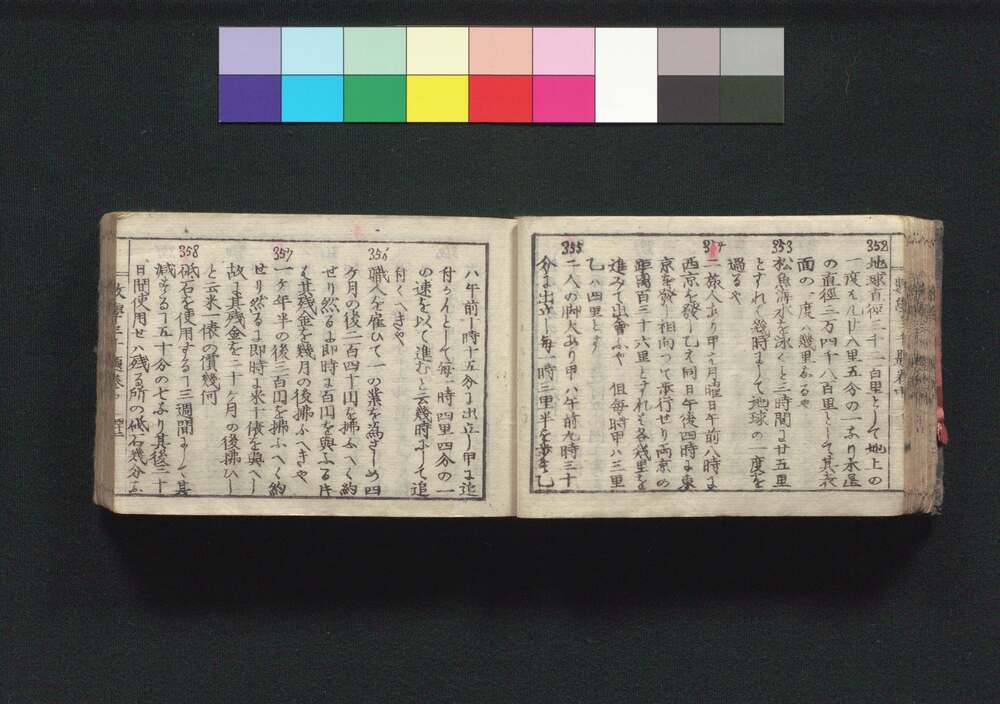 352
地球直徑三千二百里として地上の
一度凡廿八里五分の一なり木星
の直徑三万四千八百里として其表
面の一度は幾里なるや
353
松魚海水を泳くこと三時間に廿五里
とすれは幾時にして地球の一度を
過るや
354
二旅人あり甲は月曜日午前八時に
西京を發し乙は同日午後四時に東
京を發し相向つて歩行せり両京の
距離百三十六里とすれは各幾里を
進みて出會ふや 但毎時甲は三里
乙は四里とす
355
二人の脚夫あり甲は午前九時三十
分に出立し毎一時三里半を歩き乙
は午前十時十五分に出立し甲に追
付かんとして毎一時四里四分の一
の速を以て進むと云幾時にして追
付くへきや
356
職人を雇ひて一の業を為さしめ四
ケ月の後二百四十円を拂ふへく約
せり然るに即時に百円を與ふる片
は其残金を幾月の後拂ふへきや
357
一ケ年半の後三百円を拂ふへく約
せり然るに即時に米十俵を與へし
故に其残金を二十ケ月の後拂ひし
と云米一俵の價幾何
358
砥石を使用すること三週間にして其
減すること五十分の七なり其後三十
日間使用せは残る所の砥石幾分な